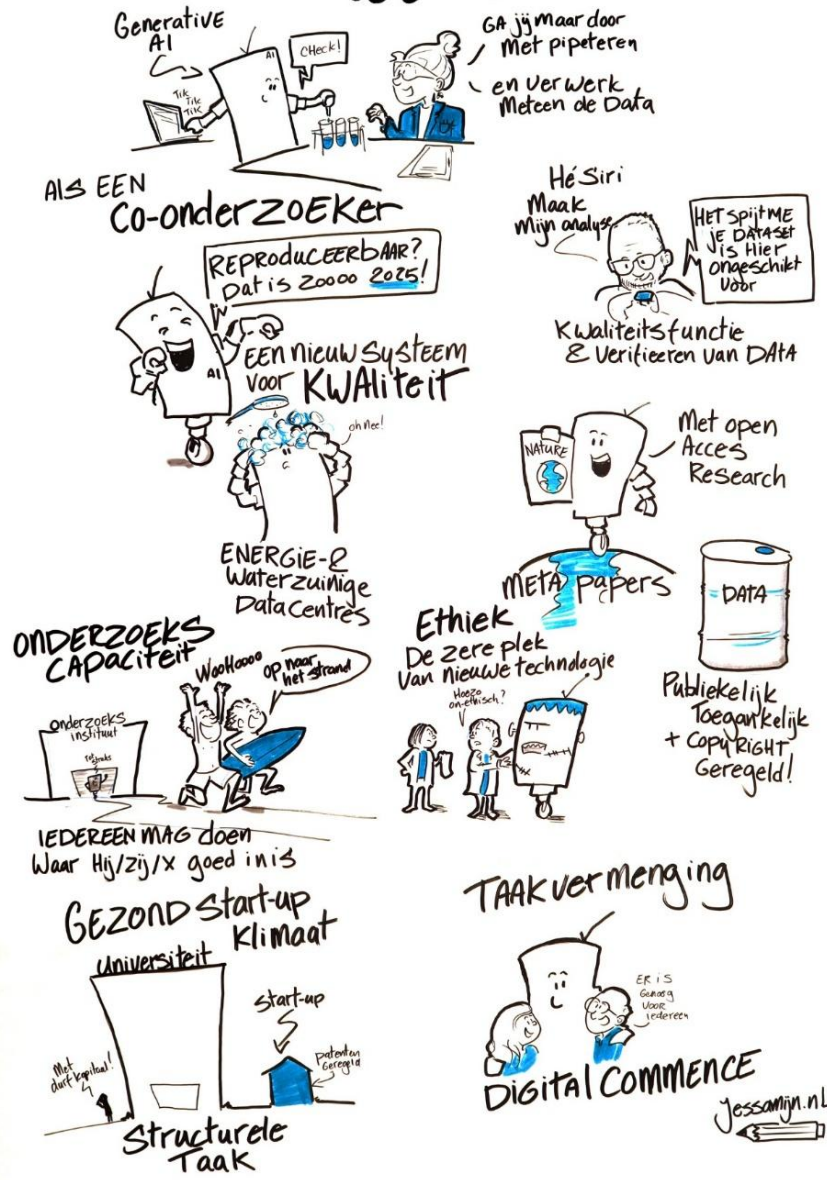 Generative
AI
AI
CHeck!
Tik
Tik
Tik
GA jij maar door
met pipeteren
en verwerk
Meteen de Data
Als EEN
CO-onderZOEKer
HéSiri
Maak
Mijn analyse
HET SPIJT ME
JE DATASET
is Hier
ongeschikt
voor
Kwaliteitsfunctie
& Verifieeren van DATA
REPRODUCEERBAAR?
Dat is zoooo 2025!
AI
EEN nieuw systeem
voor KWAliteit
oh nee!
ENERGIE-&
Waterzuinige
DataCentrès
NATURE
Met open
Acces
Research
META papers
DATA
Publiekelijk
Toegankelijk
+ COPYRIGHT
Geregeld!
ONDERZOEKS
CAPACiteit
WooHoooo
op naar
het strand
onderzoeks
instituut
IEDEREEN MAG doen
Waar Hij/zij/x goed in is
Ethiek
De zere plek
Van nieuwe technologie
Hoezo
on-ethisch?
GEZOND Start-up
Klimaat
Universiteit
Start-up
patenten
Geregeld
Met
durfkapitaal!
Structurele
Taak
TAAKvermenging
ER is
Genoeg
voor
iedereen
DIGITAL COMMENCE
jessamijn.nl